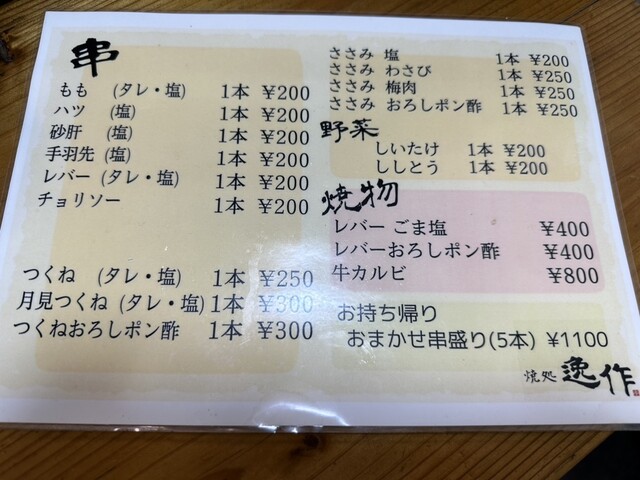 串
もも (タレ・塩) 1本 ¥200
ハツ (塩) 1本 ¥200
砂肝 (塩) 1本 ¥200
手羽先 (塩) 1本 ¥200
レバー (タレ・塩) 1本 ¥200
チョリソー 1本 ¥200
つくね (タレ・塩) 1本 ¥250
月見つくね (タレ・塩) 1本 ¥300
つくねおろしポン酢 1本 ¥300
ささみ 塩 1本 ¥200
ささみ わさび 1本 ¥250
ささみ 梅肉 1本 ¥250
ささみ おろしポン酢 1本 ¥250
野菜
しいたけ 1本 ¥200
ししとう 1本 ¥200
焼物
レバー ごま塩 ¥400
レバーおろしポン酢 ¥400
牛カルビ ¥800
お持ち帰り
おまかせ串盛り(5本) ¥1100
焼処 逸作